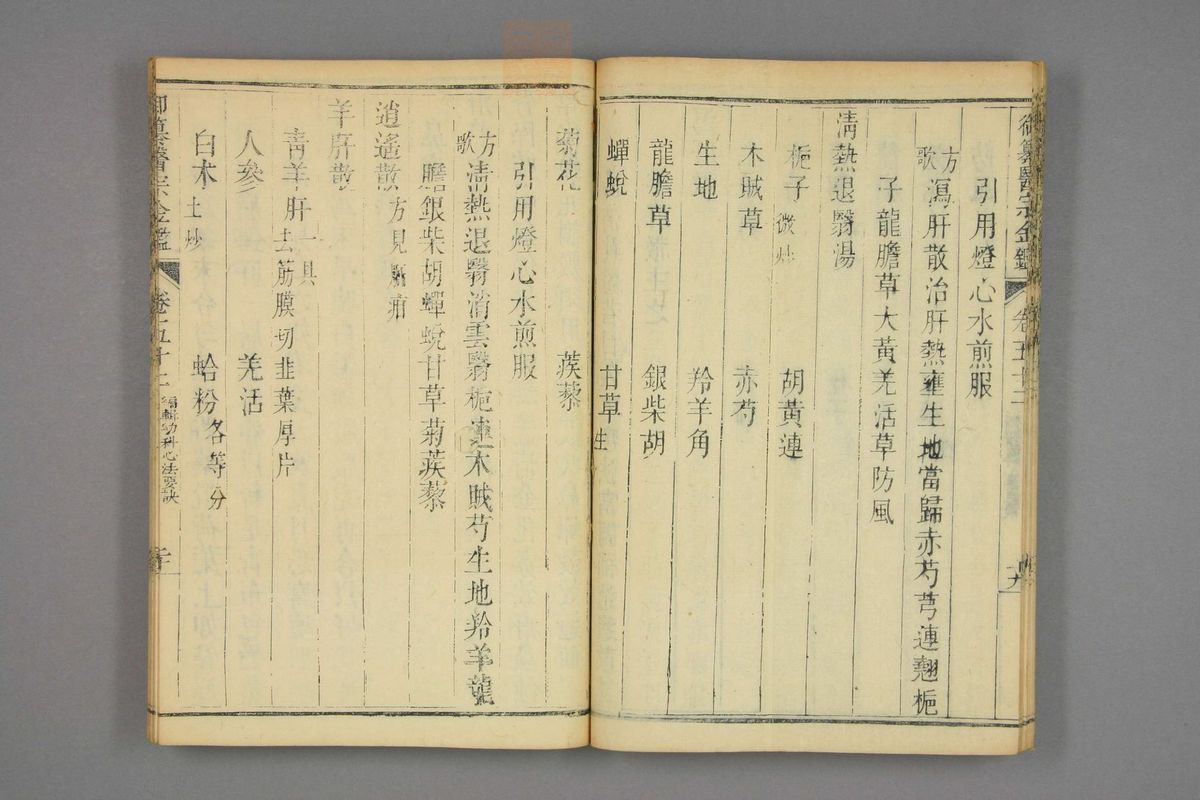 御纂醫宗金鑑
卷五十二
引用燈心水煎服
方歌 瀉肝散治肝熱壅生地當歸赤芍芎連翹梔
子龍膽草大黃羌活草防風
清熱退翳湯
梔子微炒 胡黃連
木賊草 赤芍
生地 羚羊角
龍膽草 銀柴胡
蟬蛻 甘草生
菊花 蒺藜
引用燈心水煎服
方歌 清熱退翳消雲翳梔連木賊芍生地羚羊龍
膽銀柴胡蟬蛻甘草菊蒺藜
逍遙散方見
羊肝散
青羊肝一具去筋膜切韭葉厚片
人參 羌活
白朮土炒 蛤粉各等分
御纂醫宗金鑑
卷五十二
編輯幼科心法要訣